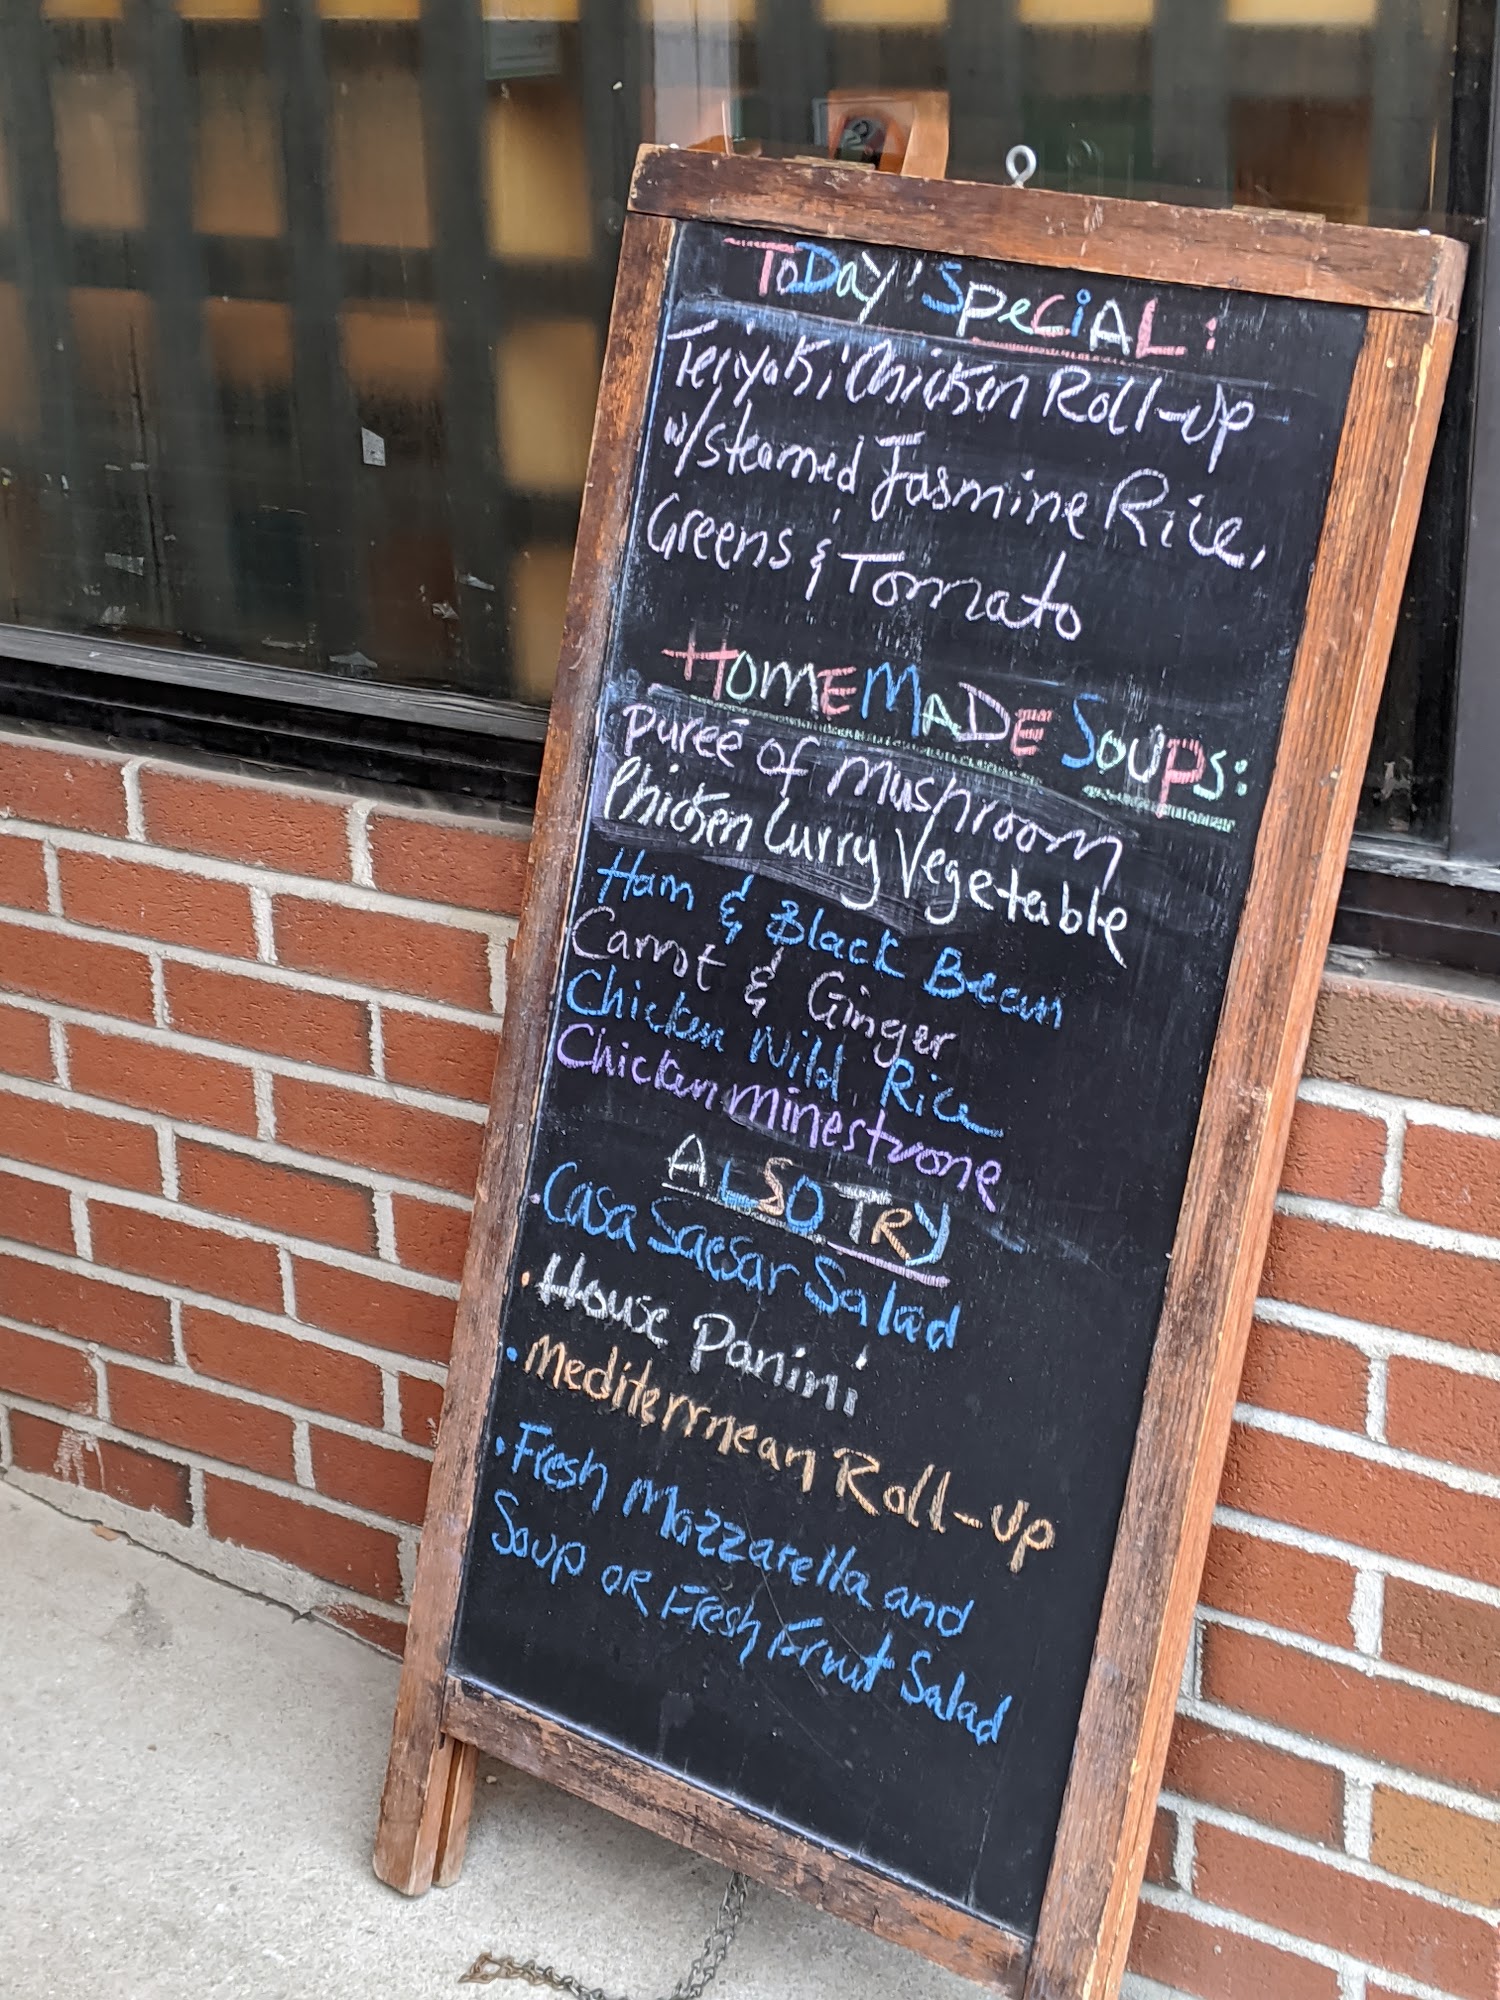 ToDay'SpeciAL:
Teriyaki Chicken Roll-up
w/steamed Jasmine Rice,
Greens & Tomato
HOMEMADE SOUPS:
Pureé of Mushroom
Chicken Curry Vegetable
Ham & Black Bean
Carrot & Ginger
Chicken Wild Rice
Chicken Minestrone
ALSO TRY
•Casa Saesar Salad
•House Panini
•Mediterrnean Roll-up
•Fresh Mazzarella and
Soup or Fresh Fruit Salad